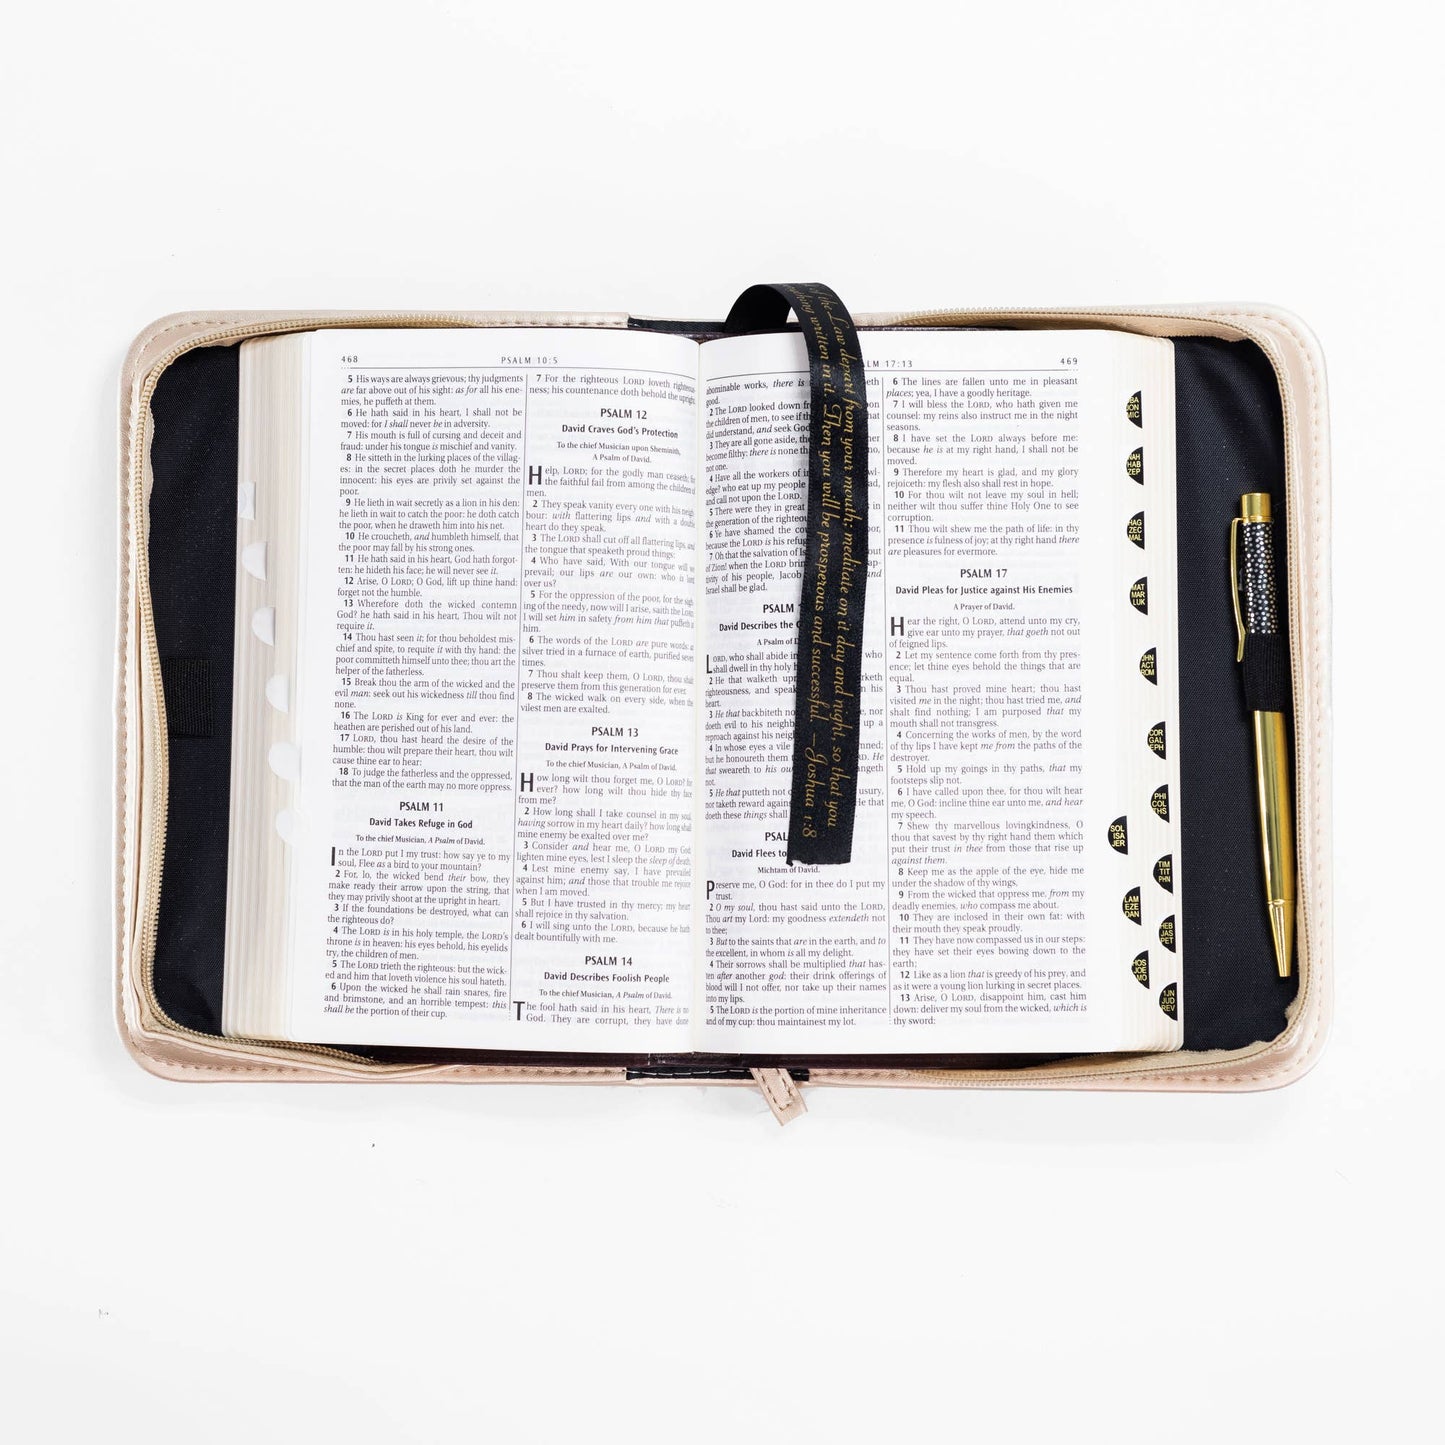 468
PSALM 10:5
5 His ways are always grievous; thy judgments
are far above out of his sight: as for all his ene-
mies, he puffeth at them.
6 He hath said in his heart, I shall not be
moved: for I shall never be in adversity.
7 His mouth is full of cursing and deceit and
fraud: under his tongue is mischief and vanity.
8 He sitteth in the lurking places of the villag-
es: in the secret places doth he murder the
innocent: his eyes are privily set against the
poor.
9 He lieth in wait secretly as a lion in his den:
he lieth in wait to catch the poor: he doth catch
the poor, when he draweth him into his net.
10 He croucheth, and humbleth himself, that
the poor may fall by his strong ones.
11 He hath said in his heart, God hath forgot-
ten: he hideth his face; he will never see it.
12 Arise, O LORD; O God, lift up thine hand:
forget not the humble.
13 Wherefore doth the wicked contemn
God? he hath said in his heart, Thou wilt not
require it.
14 Thou hast seen it; for thou beholdest mis-
chief and spite, to requite it with thy hand: the
poor committeth himself unto thee; thou art the
helper of the fatherless.
15 Break thou the arm of the wicked and the
evil man: seek out his wickedness till thou find
none.
16 The LORD is King for ever and ever: the
heathen are perished out of his land.
17 LORD, thou hast heard the desire of the
humble: thou wilt prepare their heart, thou wilt
cause thine ear to hear:
18 To judge the fatherless and the oppressed,
that the man of the earth may no more oppress.
PSALM 11
David Takes Refuge in God
To the chief Musician, A Psalm of David.
In the LORD put I my trust: how say ye to my
soul, Flee as a bird to your mountain?
2 For, lo, the wicked bend their bow, they
make ready their arrow upon the string, that
they may privily shoot at the upright in heart.
3 If the foundations be destroyed, what can
the righteous do?
4 The LORD is in his holy temple, the LORD's
throne is in heaven: his eyes behold, his eyelids
try, the children of men.
5 The LORD trieth the righteous: but the wick-
ed and him that loveth violence his soul hateth.
6 Upon the wicked he shall rain snares, fire
and brimstone, and an horrible tempest: this
shall be the portion of their cup.
7 For the righteous LORD loveth righteous-
ness; his countenance doth behold the upright.
PSALM 12
David Craves God's Protection
To the chief Musician upon Sheminith,
A Psalm of David.
Help, LORD; for the godly man ceaseth; for
the faithful fail from among the children of
men.
2 They speak vanity every one with his neigh-
bour: with flattering lips and with a double
heart do they speak.
3 The LORD shall cut off all flattering lips, and
the tongue that speaketh proud things:
4 Who have said, With our tongue will we
prevail; our lips are our own: who is lord
over us?
5 For the oppression of the poor, for the sigh-
ing of the needy, now will I arise, saith the LORD;
I will set him in safety from him that puffeth at
him.
6 The words of the LORD are pure words: as
silver tried in a furnace of earth, purified seven
times.
7 Thou shalt keep them, O LORD, thou shalt
preserve them from this generation for ever.
8 The wicked walk on every side, when the
vilest men are exalted.
PSALM 13
David Prays for Intervening Grace
To the chief Musician, A Psalm of David.
How long wilt thou forget me, O LORD? for
ever? how long wilt thou hide thy face
from me?
2 How long shall I take counsel in my soul,
having sorrow in my heart daily? how long shall
mine enemy be exalted over me?
3 Consider and hear me, O LORD my God:
lighten mine eyes, lest I sleep the sleep of death,
4 Lest mine enemy say, I have prevailed
against him; and those that trouble me rejoice
when I am moved.
5 But I have trusted in thy mercy; my heart
shall rejoice in thy salvation.
6 I will sing unto the LORD, because he hath
dealt bountifully with me.
PSALM 14
David Describes Foolish People
To the chief Musician, A Psalm of David.
The fool hath said in his heart, There is no
God. They are corrupt, they have done
LM 17:13
469
abominable works, there is
good.
2 The LORD looked down
the children of men, to see if
did understand, and seek God
3 They are all gone aside, the
become filthy: there is none
not one.
4 Have all the workers of
edge? who eat up my people
and call not upon the LORD.
5 There were they in great
the generation of the
6 Ye have shamed the
because the LORD is his
7 Oh that the salvation of
of Zion! when the LORD
of his people, Jacob
Israel shall be glad.
PSALM
David Describes the
A Psalm of
LORD, who shall abide in
shall dwell in thy holy
2 He that walketh
righteousness, and
heart.
3 He that backbiteth
doeth evil to his
reproach against his
4 In whose eyes a vile
but he honoureth them
that sweareth to his
not.
5 He that putteth not
nor taketh reward
doeth these things shall
David Flees to
Michtam of David.
Preserve me, O God: for in thee do I put my
trust.
2 O my soul, thou hast said unto the LORD,
Thou art my Lord: my goodness extendeth not
to thee;
3 But to the saints that are in the earth, and to
the excellent, in whom is all my delight.
4 Their sorrows shall be multiplied that has-
ten after another god: their drink offerings of
blood will I not offer, nor take up their names
into my lips.
5 The LORD is the portion of mine inheritance
and of my cup: thou maintainest my lot.
6 The lines are fallen unto me in pleasant
places; yea, I have a goodly heritage.
7 I will bless the LORD, who hath given me
counsel: my reins also instruct me in the night
seasons.
8 I have set the LORD always before me:
because he is at my right hand, I shall not be
moved.
9 Therefore my heart is glad, and my glory
rejoiceth: my flesh also shall rest in hope.
10 For thou wilt not leave my soul in hell;
neither wilt thou suffer thine Holy One to see
corruption.
11 Thou wilt shew me the path of life: in thy
presence is fulness of joy; at thy right hand there
are pleasures for evermore.
PSALM 17
David Pleas for Justice against His Enemies
A Prayer of David.
Hear the right, O LORD, attend unto my cry,
give ear unto my prayer, that goeth not out
of feigned lips.
2 Let my sentence come forth from thy pres-
ence; let thine eyes behold the things that are
equal.
3 Thou hast proved mine heart; thou hast
visited me in the night; thou hast tried me, and
shalt find nothing; I am purposed that my
mouth shall not transgress.
4 Concerning the works of men, by the word
of thy lips I have kept me from the paths of the
destroyer.
5 Hold up my goings in thy paths, that my
footsteps slip not.
6 I have called upon thee, for thou wilt hear
me, O God: incline thine ear unto me, and hear
my speech.
7 Shew thy marvellous lovingkindness, O
thou that savest by thy right hand them which
put their trust in thee from those that rise up
against them.
8 Keep me as the apple of the eye, hide me
under the shadow of thy wings,
9 From the wicked that oppress me, from my
deadly enemies, who compass me about.
10 They are inclosed in their own fat: with
their mouth they speak proudly.
11 They have now compassed us in our steps:
they have set their eyes bowing down to the
earth;
12 Like as a lion that is greedy of his prey, and
as it were a young lion lurking in secret places.
13 Arise, O LORD, disappoint him, cast him
down: deliver my soul from the wicked, which is
thy sword:
of the Law depart from your mouth; meditate on it day and night, so that you
everything written in it. Then you will be prosperous and successful. —Joshua 1:8
HAB
ZEP
HAG
ZEC
MAL
MAT
MAR
LUK
ACT
ROM
COR
GAL
EPH
PHI
COL
THS
SOL
ISA
JER
TIM
TIT
PHN
LAM
EZE
DAN
HEB
JAS
PET
HOS
JOE
AMO
1JN
JUD
REV